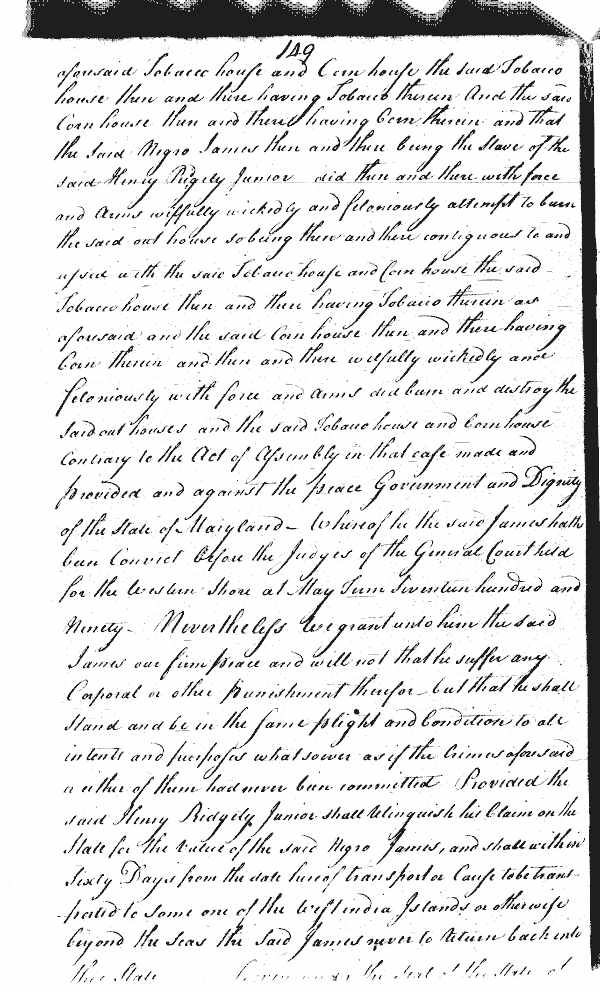 149
aforesaid Tobacco house and Corn house the said Tobacco
house then and there having Tobacco therein And the said
Corn house then and there having Corn therein and that
the Said Negro James then and there being the Slave of the
said Henry Ridgely Junior did then and there with force
and Arms wilfully wickedly and feloniously attempt to burn
the said out house so being then and there contiguous to and
used with the said Tobacco house and Corn house the said
Tobacco house then and there having Tobacco therein as
aforesaid and the said Corn house then and there having
Corn therein and then and there wilfully wickedly and
feloniously with force and Arms did burn and destroy the
Said out houses and the said Tobacco house and Corn house
Contrary to the Act of Assembly in that case made and
provided and against the peace Government and Dignity
of the State of Maryland – Whereof he the said James hath
been Convict before the Judges of the General Court held
for the Western Shore at May Term Seventeen hundred and
Ninety – Nevertheless We grant unto him the said
James our firm peace and will not that he suffer any
Corporal or other punishment therefor – but that he shall
Stand and be in the same plight and Condition to all
intents and purposes whatsoever as if the Crimes aforesaid
or either of them had never been committed Provided the
said Henry Ridgely Junior shall relinquish his Claim on the
State for the value of the said Negro James, and shall within
Sixty Days from the date hereof transport or Cause to be trans-
-ported to some one of the West india Islands or otherwise
beyond the seas the Said James never to return back into
this State Given under the Seal of the State of